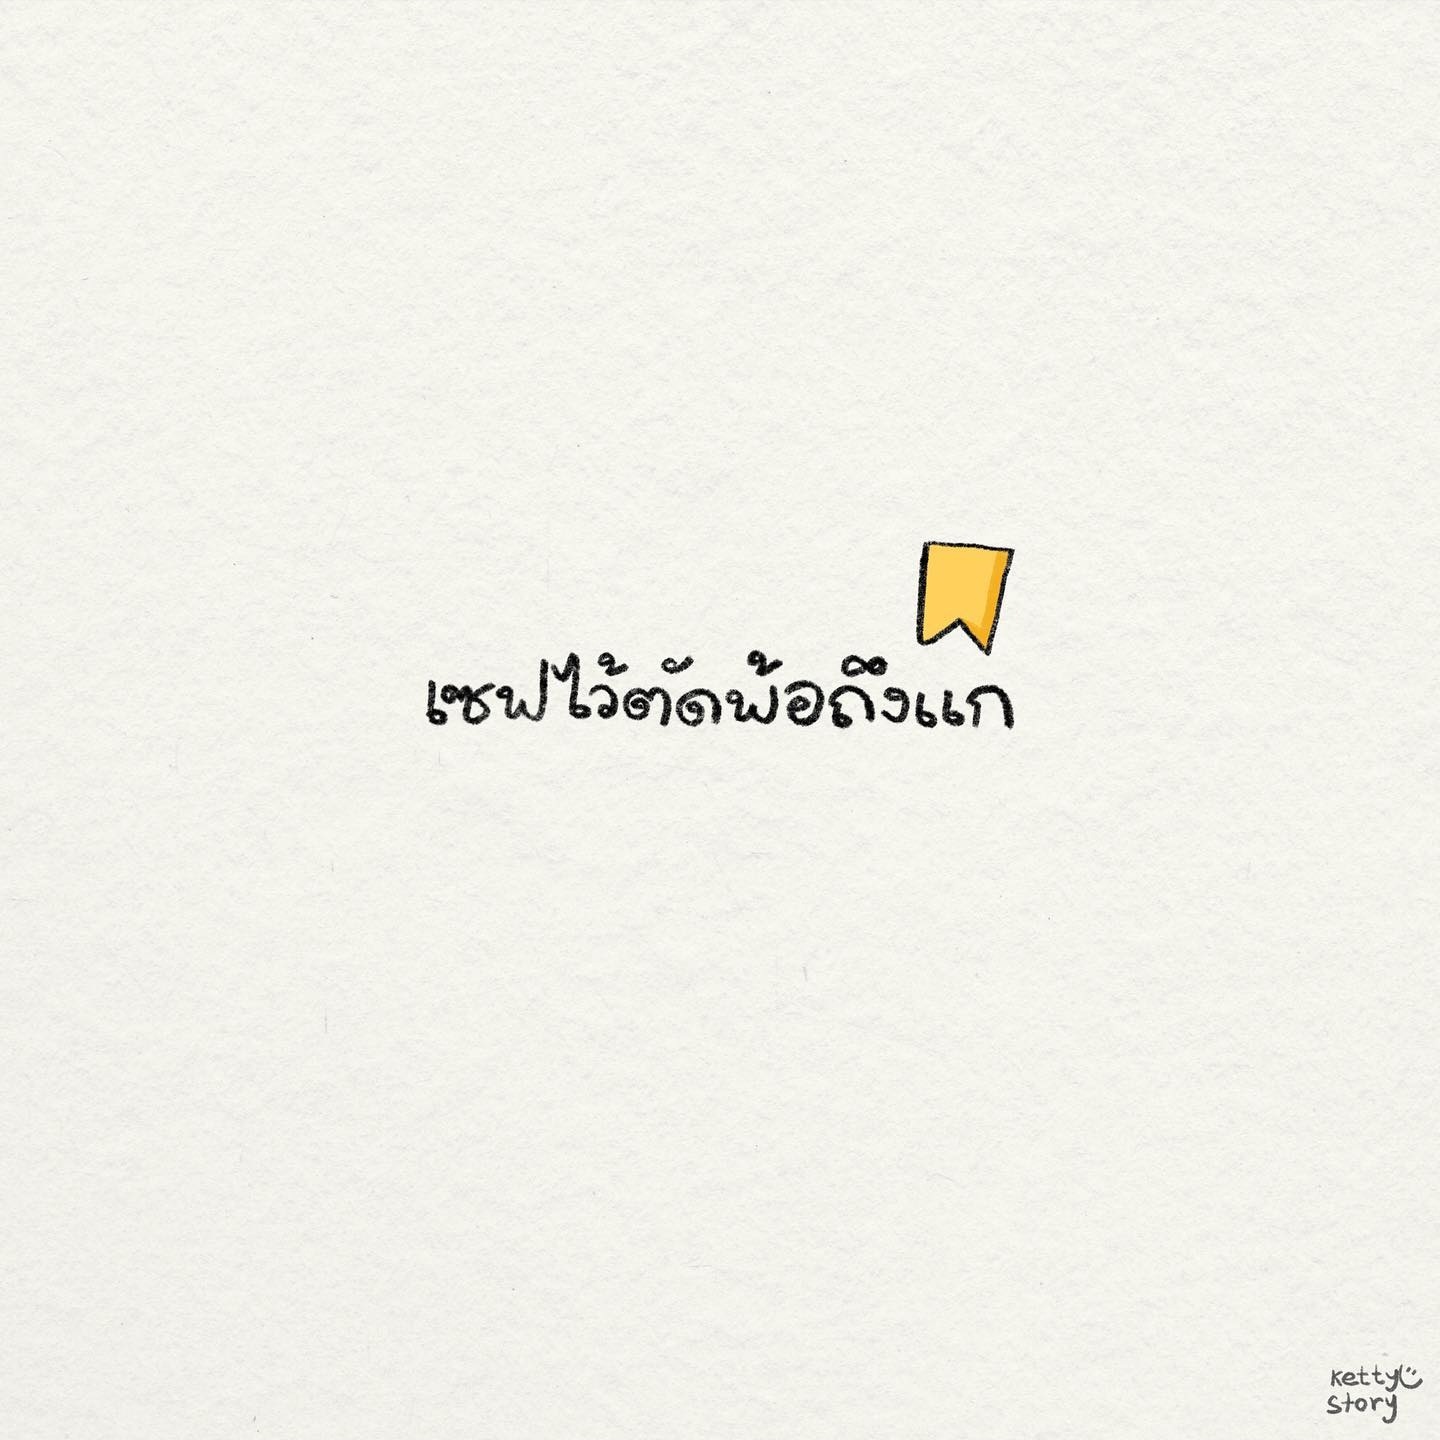 เซฟไว้ตัดพ้อถึงแก
ketty
story